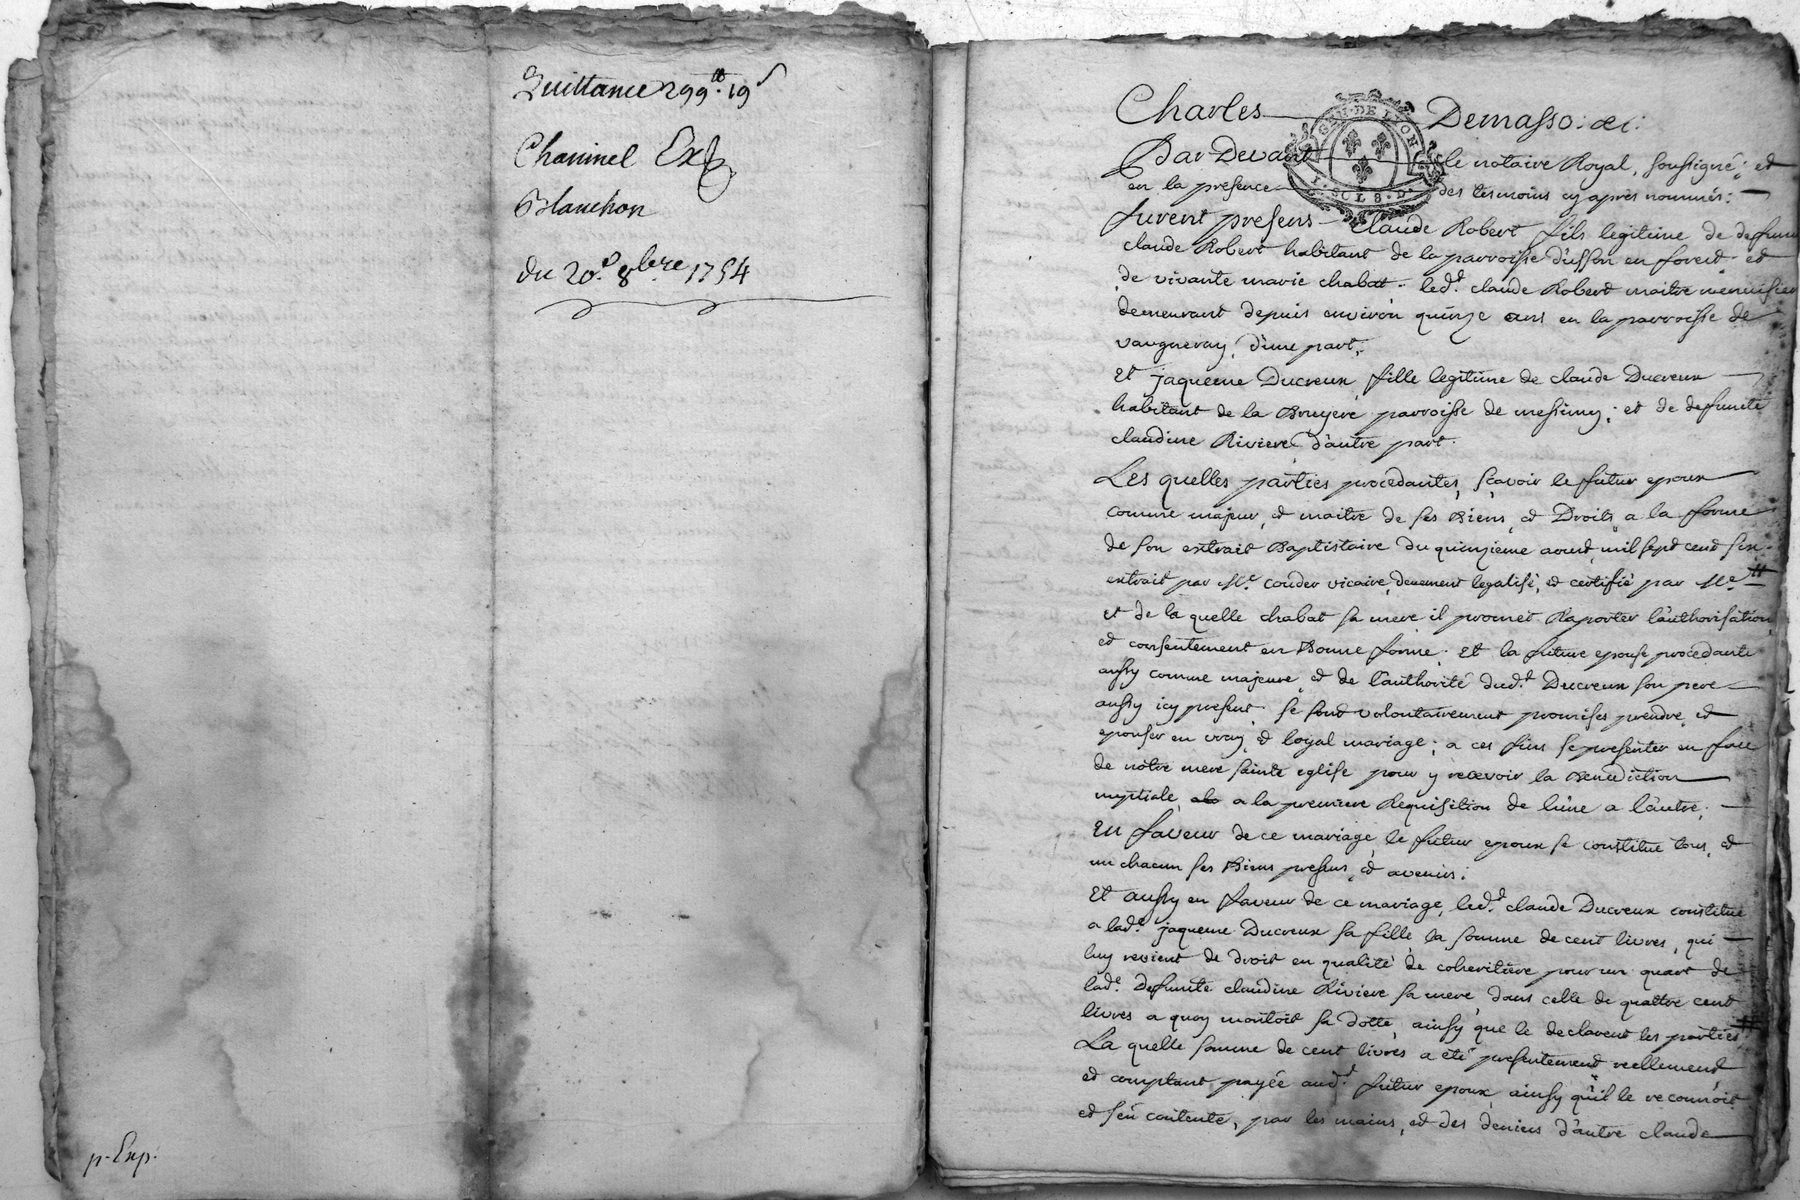 Quittance 299.tt 19 s
Channel Exp
Blanchon
du 20.e 8bre. 1754
p. Exp.
Charles Demasso: &c:
Par Devant le notaire Royal, soussigné; et
en la presence des tesmoins cy apres nommés:
furent presens Claude Robert fils legitime de defunt
claude Robert habitant de la parroisse d'usson en forest; et
de vivante marie chabat. led.t claude Robert maitre menuisier
demeurant depuis environ quinze ans en la parroisse de
vaugneray, d'une part,
Et jaqueme Ducreux, fille legitime de claude Ducreux
habitant de la Bruyere parroisse de messimy; et de defunte
claudine Riviere, d'autre part.
Les quelles parties procedantes, sçavoir le futur epoux
comme majeur, et maitre de ses Biens, et Droits, a la forme
de son extrait Baptistaire du quinzieme aoust mil sept cent six.
extrait par Mr. couder vicaire, deuement legalisé, et certifié par Me. #
et de la quelle chabat sa mere il promet Raporter l'authorisation,
et consentement en Bonne forme; Et la future epouse procedante
aussy comme majeure, et de l'authorité dud.t Ducreux son pere
aussy icy present; se sont volontairement promises prendre, et
epouser en vray, et loyal mariage; a ces fins se presenter en face
de notre mere sainte eglise pour y recevoir la Benediction
nuptiale, a la premiere Requisition de l'une a l'autre;
En faveur de ce mariage, le futur epoux se constitue tous, et
un chacun ses Biens presens, et avenirs.
Et aussy en faveur de ce mariage, led.t claude Ducreux constitue
a lad.e jaqueme Ducreux sa fille la somme de cent livres, qui
luy revient de droit en qualité de coheritiere pour un quart de
lad.e Defunte claudine Riviere sa mere dans celle de quattre cent
livres a quoy montoit sa Dotte, ainsy que le declarent les parties #
La quelle somme de cent livres a été presentement reellement
et comptant payée aud.t futur epoux, ainsy qu'il le reconnoit
et s'en contente, par les mains, et des deniers d'autre claude